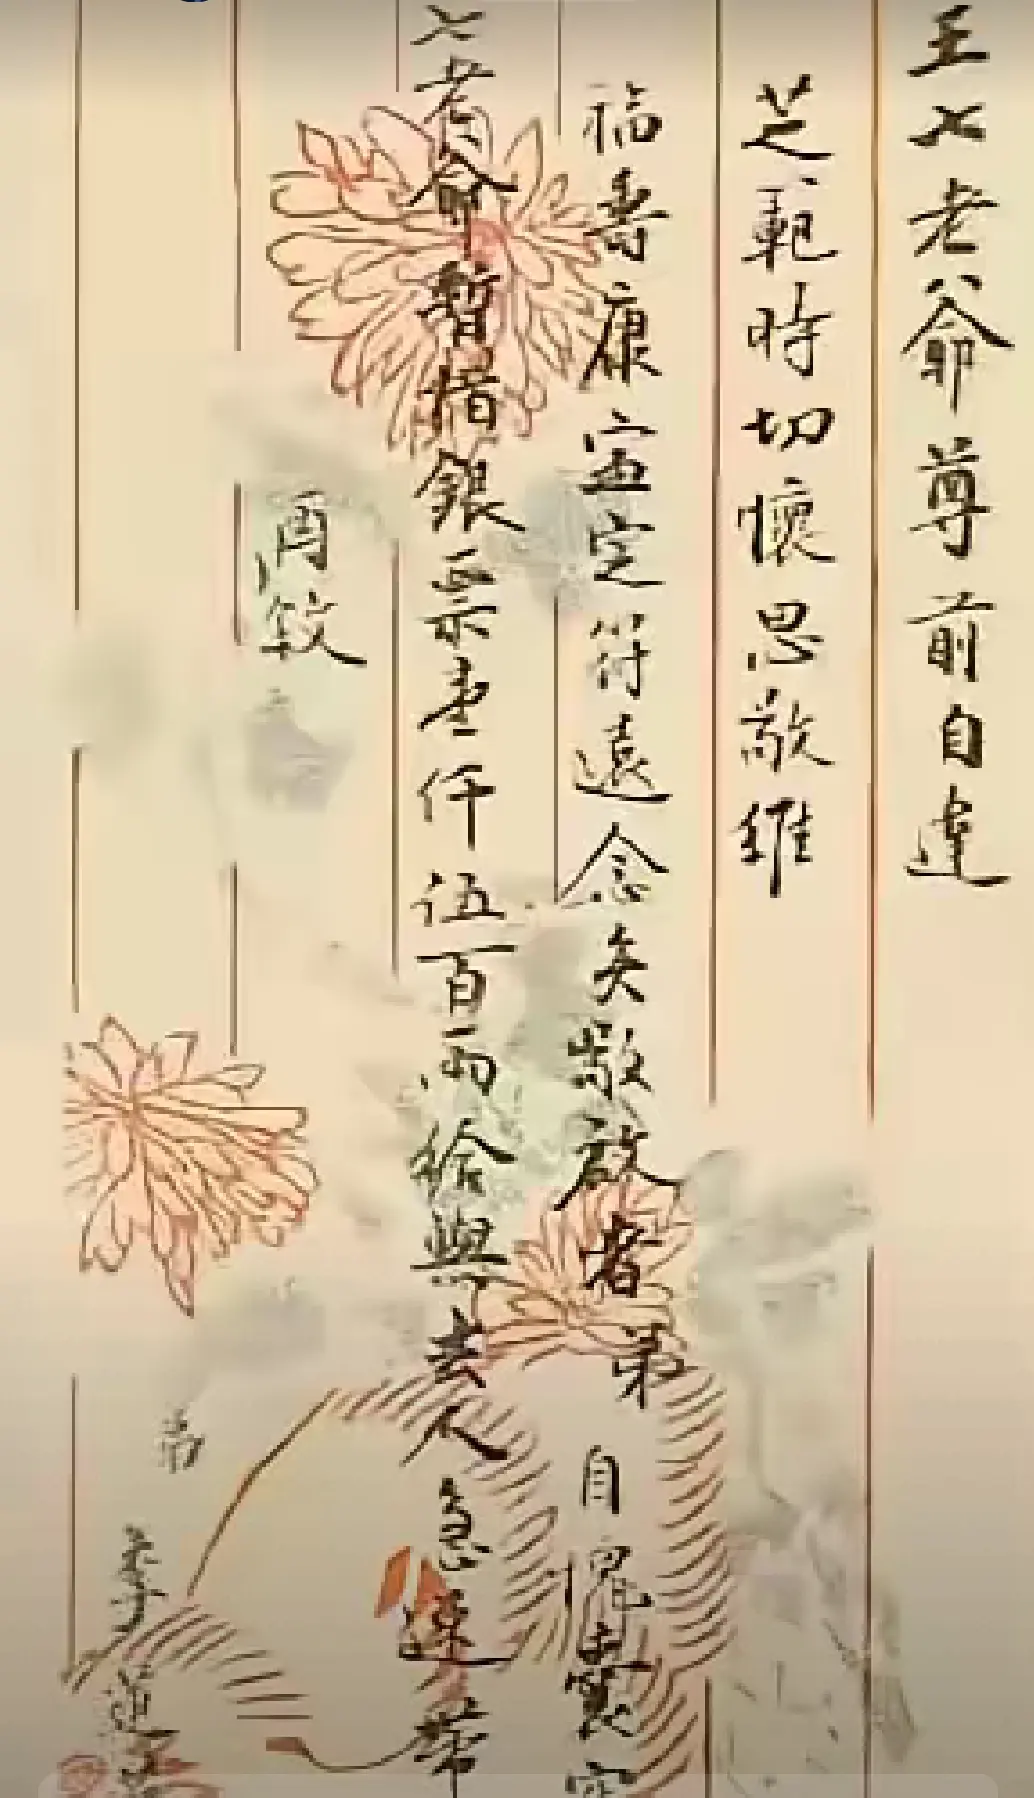 王七老爺尊前自違
芝範時切懷思敬維
福壽康寧定符遠念矣敬啟者弟自愧
七老爺暫借銀票壹仟伍百兩給與去人急速帶